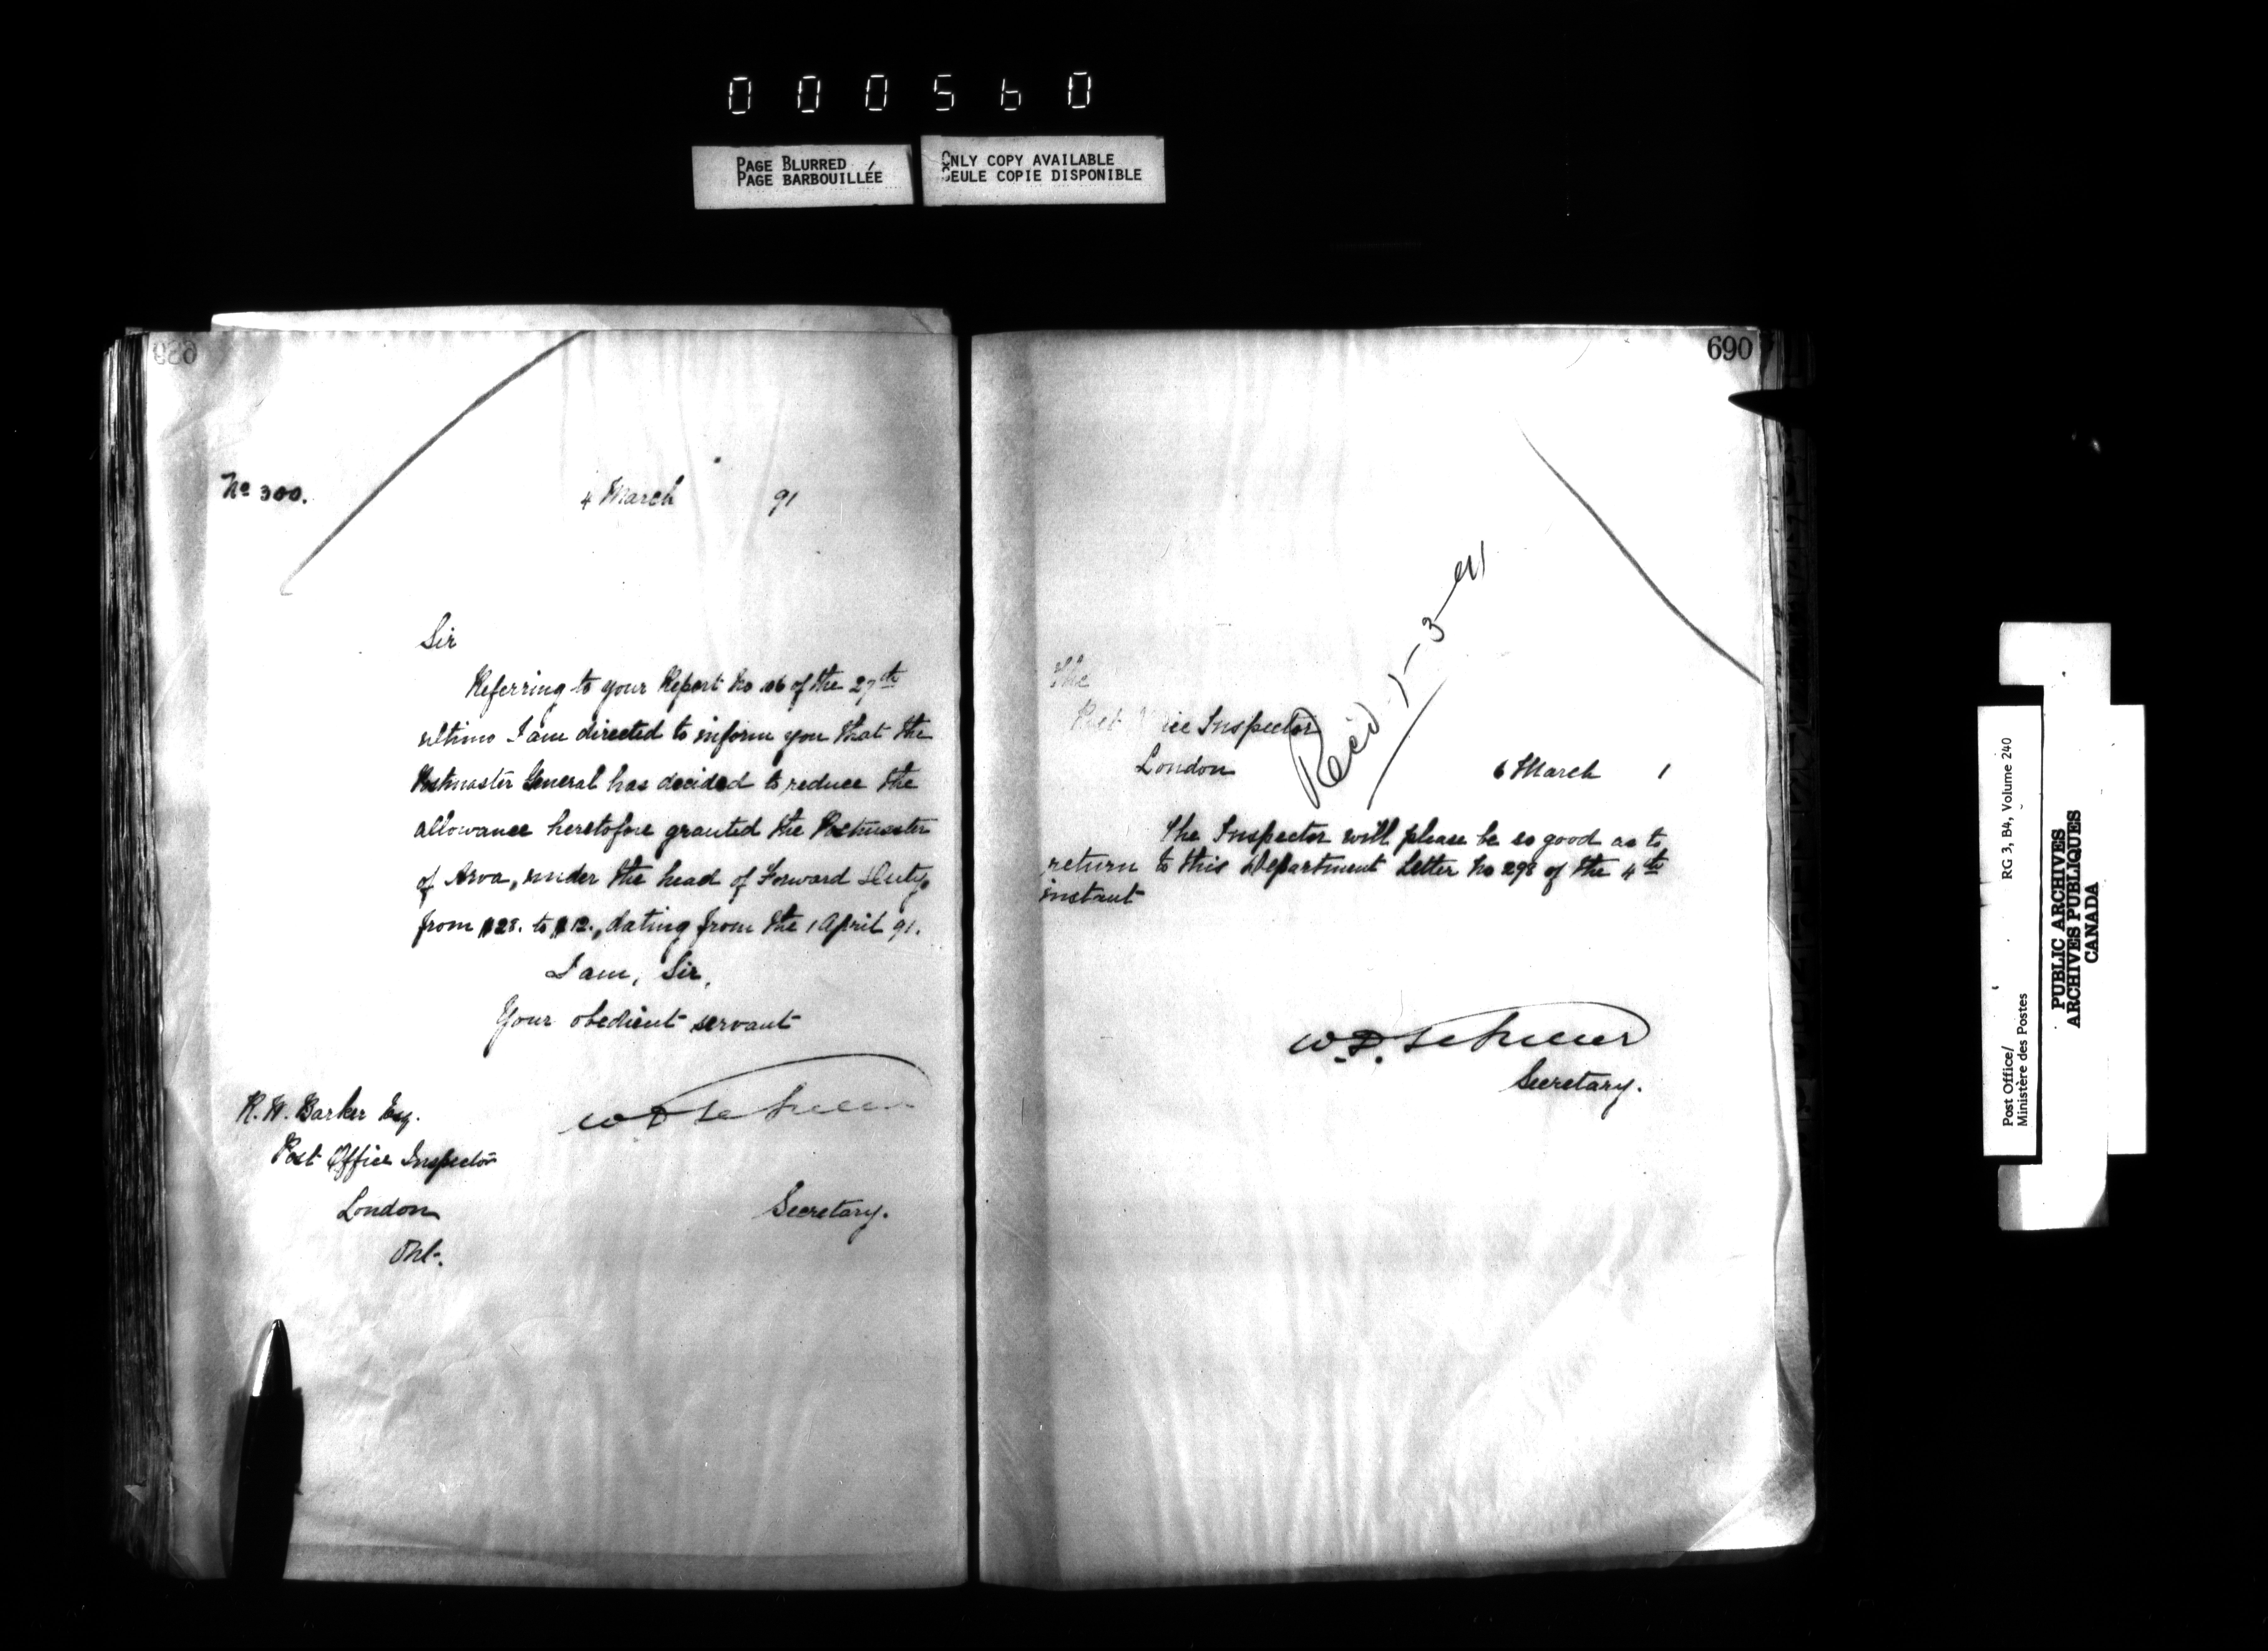 000560
PAGE BLURRED
PAGE BARBOUILLÉE
ONLY COPY AVAILABLE
SEULE COPIE DISPONIBLE
No 300.
4 March 91
Sir
Referring to your Report No 106 of the 27th
ultimo I am directed to inform you that the
Postmaster General has decided to reduce the
allowance heretofore granted the Postmaster
of Arva, under the head of Forward Duty,
from $28. to $12., dating from the 1 April 91.
I am, Sir,
Your obedient servant
Secretary.
R. W. Barker Esq.
Post Office Inspector
London
Ont.
690
The
Post ice Inspector
London
6 March 1
The Inspector will please be so good as to
return to this Department Letter No 298 of the 4th
instant
Secretary.
Post Office/
Ministère des Postes
RG 3, B4, Volume 240
PUBLIC ARCHIVES
ARCHIVES PUBLIQUES
CANADA